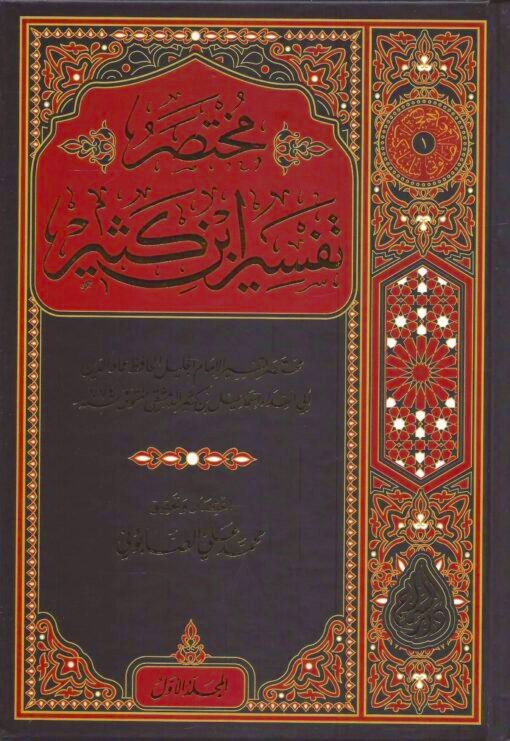 مُختصَر
تفسير ابن كثير
مختصر تفسير الإمام الجليل الحافظ عماد الدين
أبي الفداء إسماعيل بن كثير الدمشقي المتوفى سنة ٧٧٤
اختصار وتحقيق
محمد علي الصابوني
المجلد الأول
١